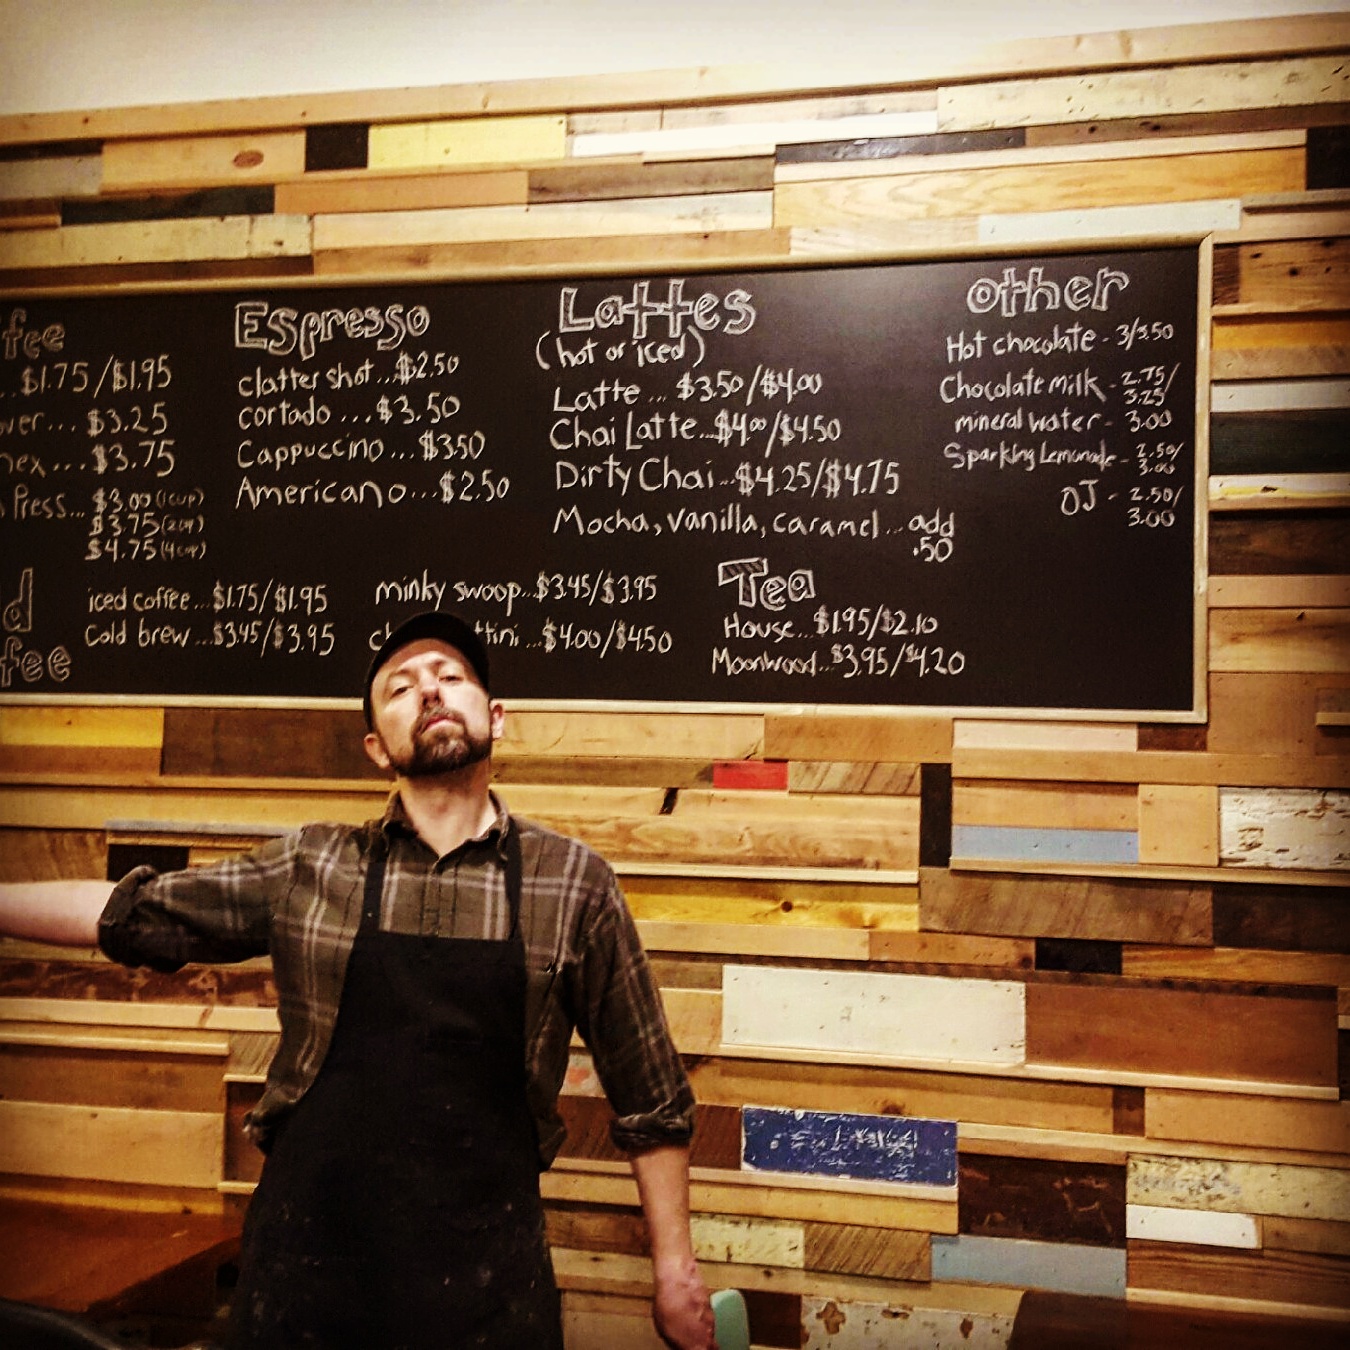 ffee
...$1.75/$1.95
ver... $3.25
mex...$3.75
Press... $3.00 (1cup)
$3.75 (2cup)
$4.75 (4cup)
Espresso
clatter shot...$2.50
cortado ...$3.50
Cappuccino...$3.50
Americano...$2.50
Lattes
(hot or iced)
Latte... $3.50/$4.00
Chai Latte...$4.00/$4.50
Dirty Chai...$4.25/$4.75
Mocha, vanilla, caramel...add
.50
other
Hot chocolate - 3/3.50
Chocolate milk - 2.75/
3.25
mineral water - 3.00
Sparking Lemonade - 2.50/
3.00
OJ - 2.50/
3.00
d
ffee
iced coffee...$1.75/$1.95
Cold brew...$3.45/$3.95
minky swoop...$3.45/$3.95
ch ttini...$4.00/$4.50
Tea
House...$1.95/$2.10
Moonwood...$3.95/$4.20